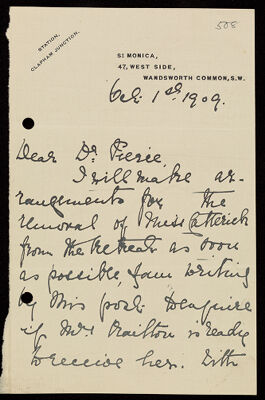 508
STATION,
CLAPHAM JUNCTION.
St MONICA,
47, WEST SIDE,
WANDSWORTH COMMON, S.W.
Oct. 1st 1909.
Dear Dr Pierce,
I will make ar-
rangements for the
removal of Miss Catterick
from the Retreat as soon
as possible, I am writing
by this post to enquire
if Mrs Railton is ready
to receive her. With